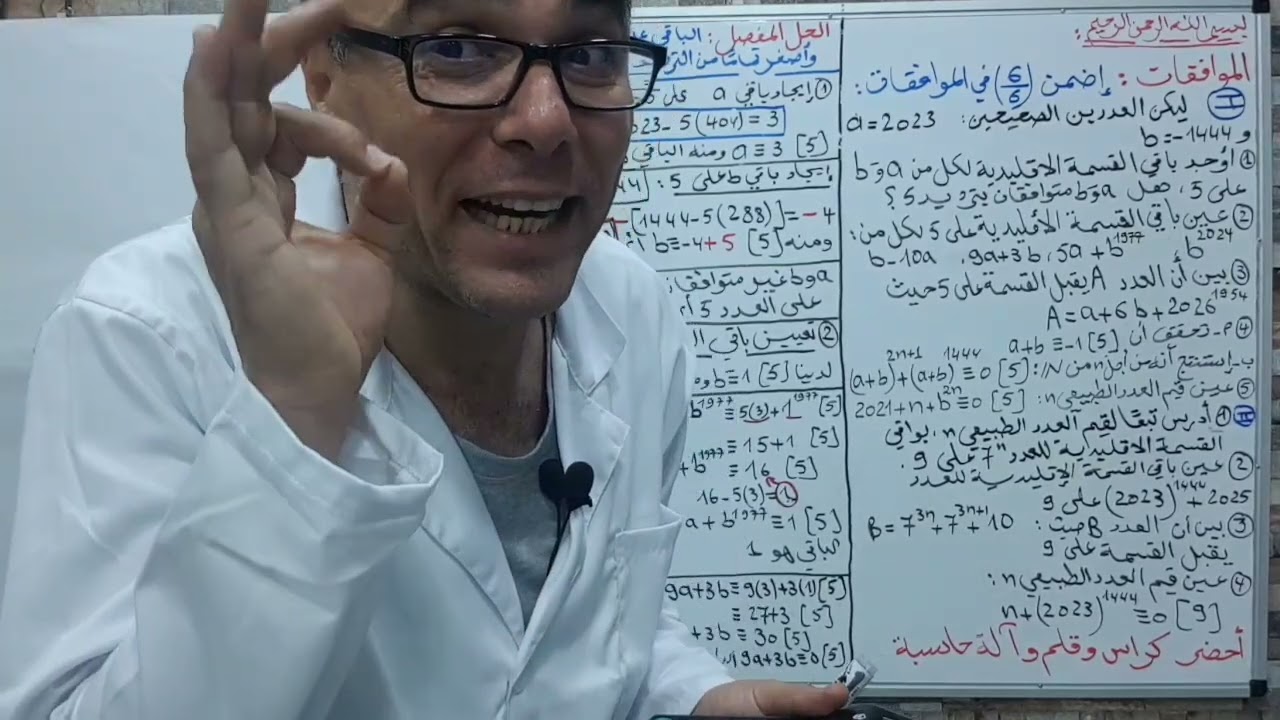 بسم الله الرحمن الرحيم:
الموافقات: إضمن (6/6) في الموافقات:
I ليكن العددين الصحيحين: a=2023
و b=-1444
① أوجد باقي القسمة الاقليدية لكل من a و b
على 5، هل a و b متوافقان بترديد 5؟
② عين باقي القسمة الأقليدية على 5 لكل من:
b-10a ، 9a+3b ، 5a+b^1977 ، b^2024
③ بين أن العدد A يقبل القسمة على 5 حيث
A=a+6b+2026^1954
④ م- تحقق أن a+b≡-1[5]
ب- إستنتج أنه من أجل n من N: (a+b)^2n+1+(a+b)^1444≡0[5]
⑤ عين قيم العدد الطبيعي n: 2021+n+b^2n≡0[5]
II ① أدرس تبعًا لقيم العدد الطبيعي n، بواقي
القسمة الاقليدية للعدد 7^n على 9.
② عين باقي القسمة الإقليدية للعدد
(2023)^1444+2025 على 9
③ بين أن العدد B حيث: B=7^3n+7^3n+1+10
يقبل القسمة على 9
④ عين قيم العدد الطبيعي n:
n+(2023)^1444≡0[9]
أحضر كراس وقلم وآلة حاسبة
الحل المفصل: الباقي
① إيجاد باقي a على 5
023-5(404)=3
a≡3[5] ومنه الباقي
إيجاد باقي b على 5:
-[1444-5(288)]=-4
ومنه b≡-4+5[5]
a و b غير متوافقان
على العدد 5
② تعيين باقي
لدينا b≡1[5]
b^1977≡5(3)+1^1977[5]
≡15+1 [5]
+b^1977≡16 [5]
16-5(3)=1
a+b^1977≡1[5]
الباقي هو 1
9a+3b≡9(3)+3(1)[5]
≡27+3 [5]
+3b≡30[5]
9a+3b≡0[5]